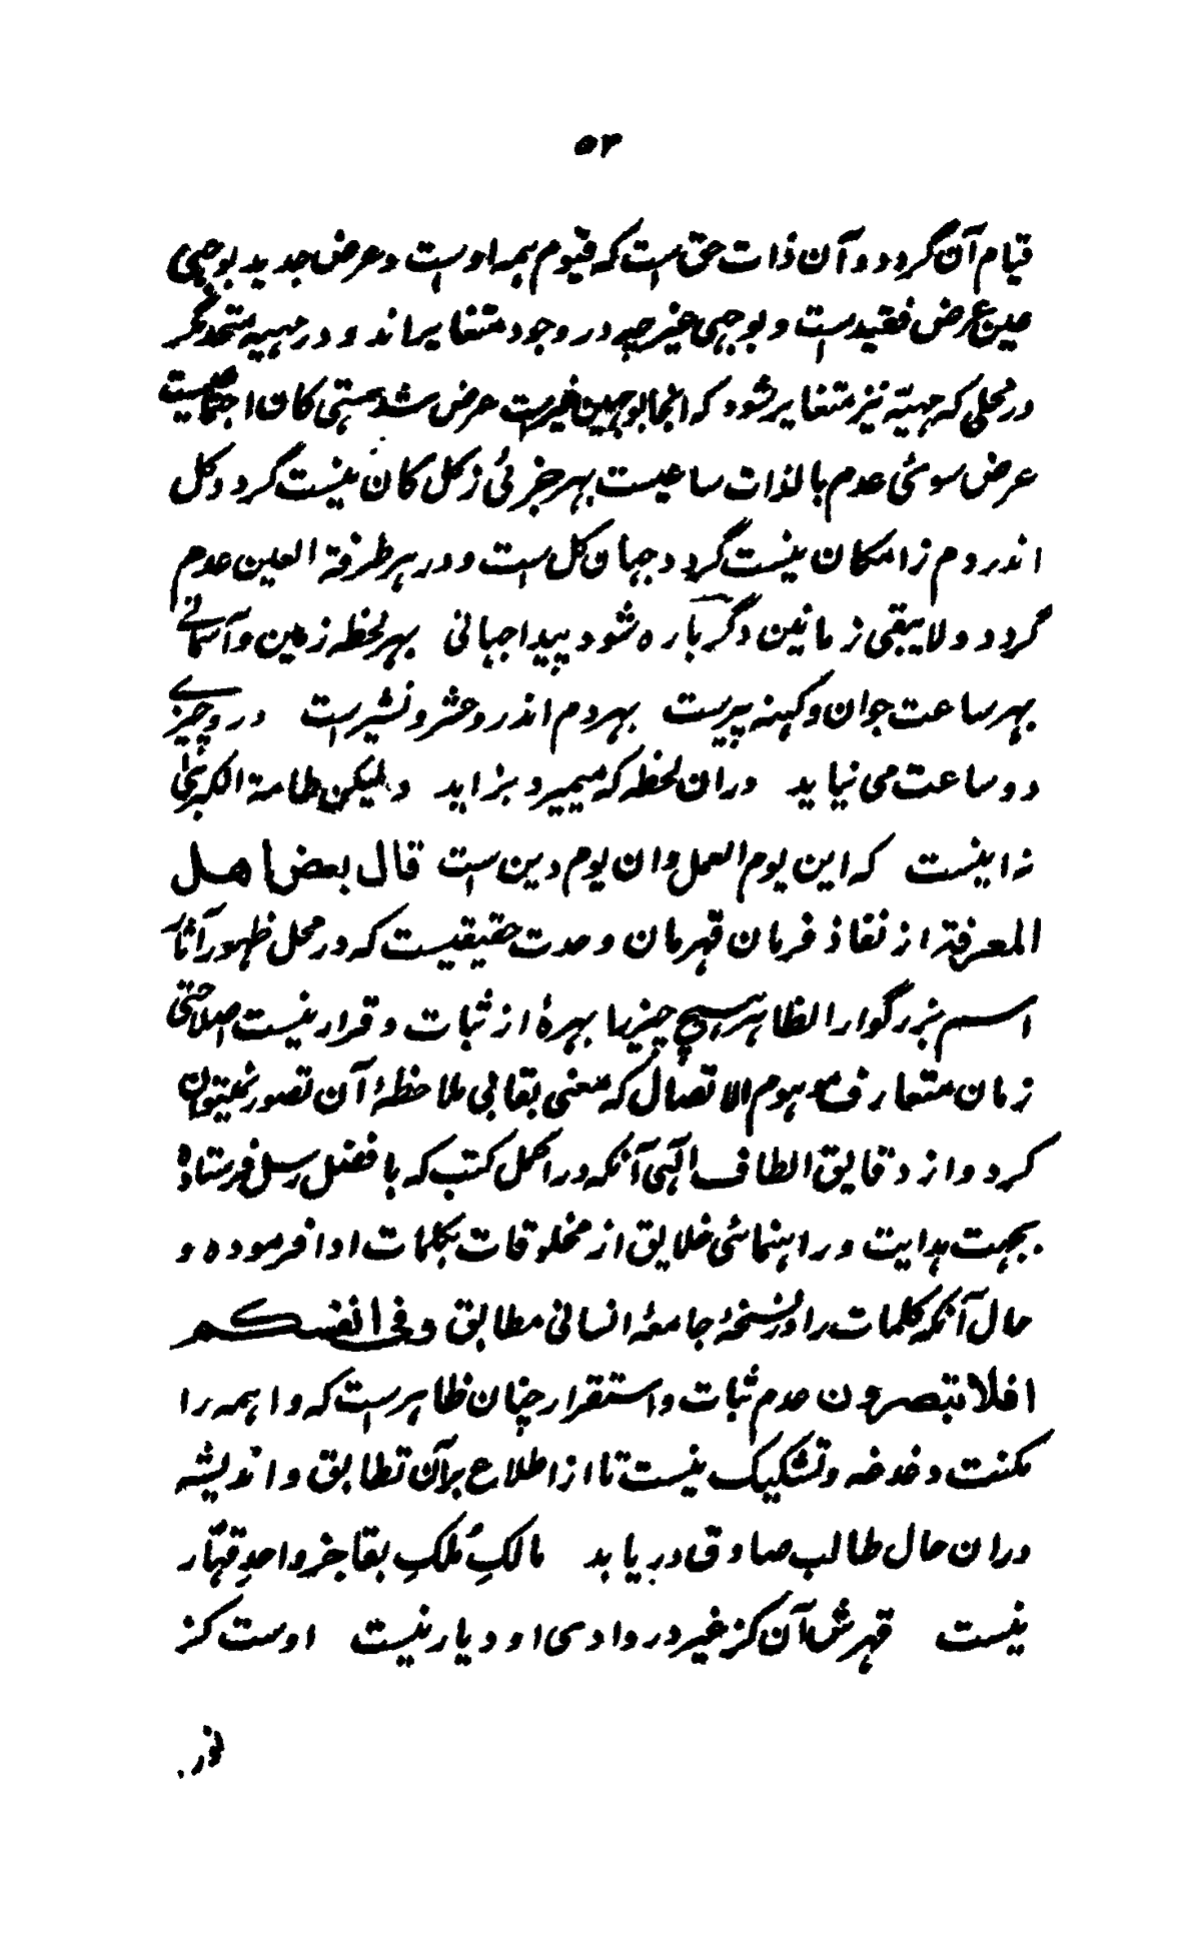 ۵۲
قیام آن گردد و آن ذات حق است که قیوم همه اوست و عرض جدید بوجهی
عین عرض فقیدست و بوجهی غیر چه در وجود متغایراند و در مهیه متحد مگر
در محلی که مهیّة نیز متغایر شود که انجا بوجهین غیرست عرض شد هستی کان اجتماعیست
عرض سوئی عدم بالذات ساعیست بهر جزئی ز کل کان نیست گردد کل
اندر دم ز امکان نیست گردد جهان کل ست و در هر طرفة العین عدم
گردد و لا یبقی زمانین دگر باره شود پیدا جهانی بهر لحظه زمین و آسمانے
بهر ساعت جوان و کهنه پیرست بهر دم اندرو حشر و نشیرست درو چیزے
دو ساعت می نیاید دران لحظه که میمیرد بزاید ولیکن طامة الکبریٰ
نه اینست که این یوم العمل وان یوم دین ست قال بعض اهل
المعرفة از نفاذ فرمان قهرمان وحدت حقیقیست که در محل ظهور آثار
اسم بزرگوار الظاهر هیچ چیز را بهرهٔ از ثبات و قرار نیست اصلا حتی
زمان متعارف موهوم الاتصال که معنی بقا بی ملاحظهٔ آن تصور نمیتوان
کرد و از دقایق الطاف الٰهی آنکه در اکمل کتب که بافضل رسل فرستاده
بجهت هدایت و راهنمائی خلایق از مخلوقات بکلمات ادا فرموده و
حال آنکه کلمات را در نسخهٔ جامعهٔ انسانی مطابق وفی انفسکم
افلا تبصرون عدم ثبات و استقرار چنان ظاهرست که واهمه را
مکنت دغدغه و تشکیک نیست تا از اطلاع بر آن تطابق و اندیشه
دران حال طالب صادق دریابد مالکِ مُلکِ بقا جز واحدِ قهّار
نیست قهرش آن کز غیر در وادی او دیار نیست اوست کز
نور